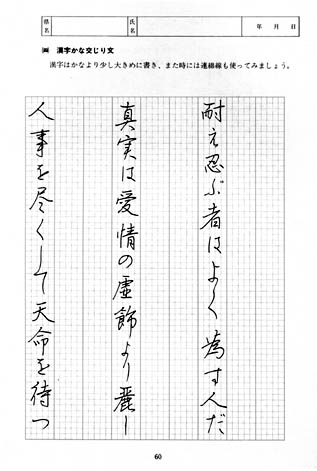 県名
氏名
年 月 日
漢字かな交じり文
漢字はかなより少し大きめに書き、また時には連綿線も使ってみましょう。
耐え忍ぶ者はよく為す人だ
真実は愛情の虚飾より麗し
人事を尽くして天命を待つ
60